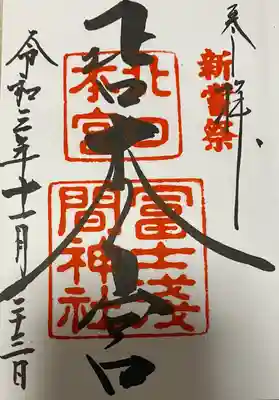 奉拝
新嘗祭
北口本宮
北口
本宮
冨士淺
間神社
令和三年十一月二十三日